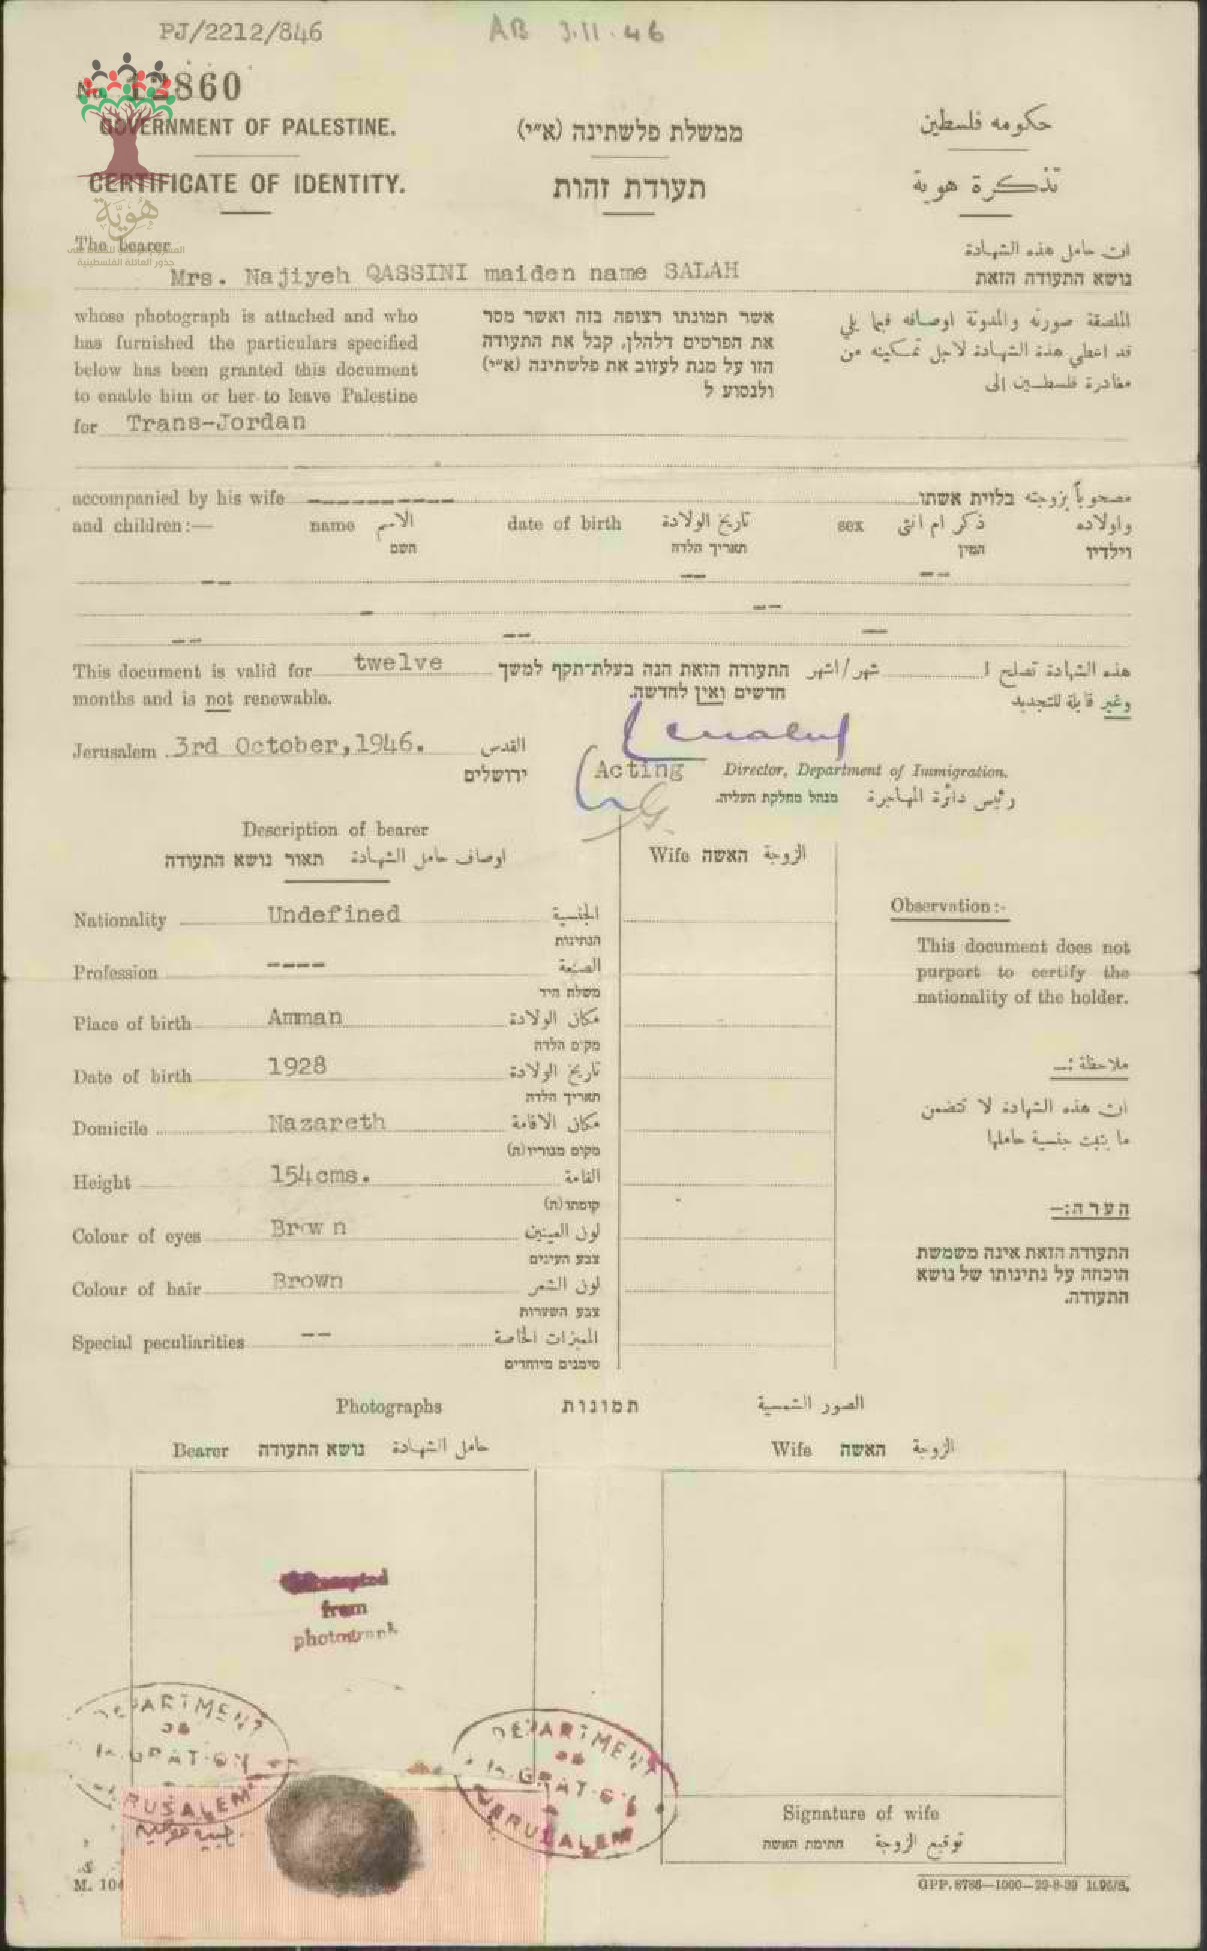 PJ/2212/846
AB 3.11.46
No 12860
GOVERNMENT OF PALESTINE.
ממשלת פלשתינה (א״י)
حكومه فلسطين
CERTIFICATE OF IDENTITY.
תעודת זהות
تذكرة هوية
هُوِيَّة
جذور العائلة الفلسطينية
The bearer
ان حامل هذه الشهادة
Mrs. Najiyeh QASSINI maiden name SALAH
נושא התעודה הזאת
whose photograph is attached and who
has furnished the particulars specified
below has been granted this document
to enable him or her to leave Palestine
for Trans-Jordan
אשר תמונתו רצופה בזה ואשר מסר
את הפרטים דלהלן, קבל את התעודה
הזו על מנת לעזוב את פלשתינה (א״י)
ולנסוע ל
الملصقة صورته والمدونة اوصافه فيما يلي
قد اعطي هذه الشهادة لاجل تمكينه من
مغادرة فلسطين الى
accompanied by his wife ----------
בלוית אשתו مصحوباً بزوجته
and children:— name الاسم date of birth تاريخ الولادة sex ذكر ام انثى واولاده
השם תאריך הלדה המין וילדיו
-- -- --
- --
-- -- --
This document is valid for twelve
months and is not renewable.
התעודה הזאת הנה בעלת־תקף למשך
חדשים ואין לחדשה.
هذه الشهادة تصلح ا شهر/اشهر
وغير قابلة للتجديد
Jerusalem 3rd October,1946. القدس
ירושלים
Acting Director, Department of Immigration.
מנהל מחלקת העליה. رئيس دائرة المهاجرة
Description of bearer
תאור נושא התעודה اوصاف حامل الشهادة
Wife האשה الزوجة
Nationality Undefined الجنسية
הנתינות
Profession ---- الصنعة
משלח היד
Place of birth Amman مكان الولادة
מקום הלדה
Date of birth 1928 تاريخ الولادة
תאריך הלדה
Domicile Nazareth مكان الاقامة
מקום מגוריו(ה)
Height 154cms. القامة
קומתו(ה)
Colour of eyes Brown لون العينين
צבע העינים
Colour of hair Brown لون الشعر
צבע השערות
Special peculiarities -- المميزات الخاصة
סימנים מיוחדים
Observation:-
This document does not
purport to certify the
nationality of the holder.
ملاحظة :ـ
ان هذه الشهادة لا تتضمن
ما يثبت جنسية حاملها
הערה:—
התעודה הזאת אינה משמשת
הוכחה על נתינותו של נושא
התעודה.
Photographs תמונות الصور الشمسية
Bearer נושא התעודה حامل الشهادة
Wife האשה الزوجة
from
photograph
DEPARTMENT
OF
IMIGRATION
JERUSALEM
DEPARTMENT
OF
IMIGRATION
JERUSALEM
Signature of wife
חתימת האשה توقيع الزوجة
M. 104
GPP. 8786—1000—29-8-39